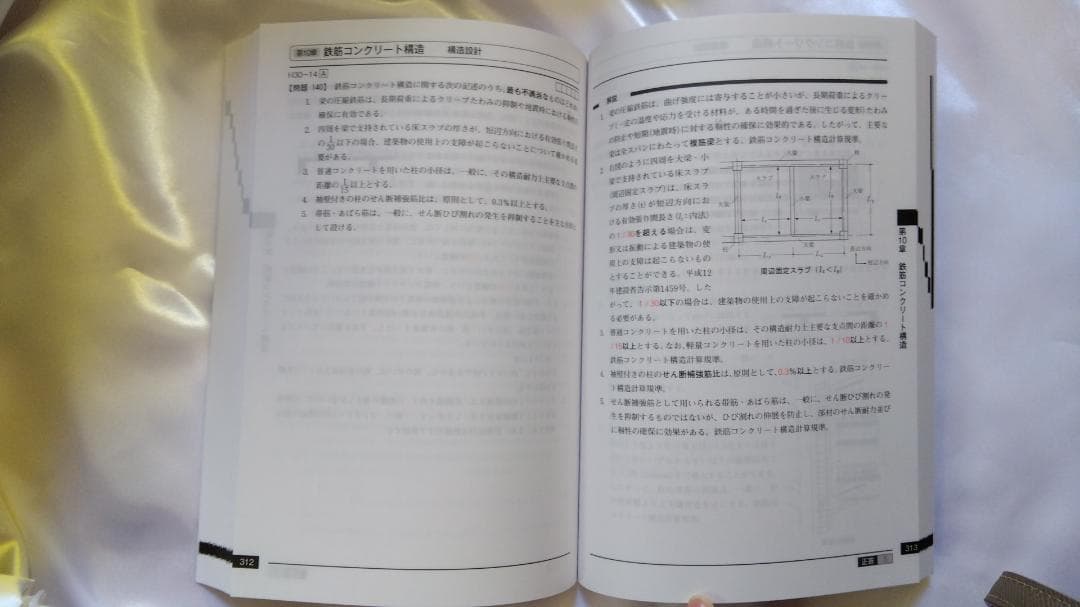 第10章 鉄筋コンクリート構造 構造設計
H30-14 A
【問題 140】 鉄筋コンクリート構造に関する次の記述のうち、最も不適当なものはどれか。
1. 梁の圧縮鉄筋は、長期荷重によるクリープたわみの抑制や地震時における靱性の
確保に有効である。
2. 四周を梁で支持されている床スラブの厚さが、短辺方向における有効張り間長さ
の1/30以下の場合、建築物の使用上の支障が起こらないことについて確かめる必
要がある。
3. 普通コンクリートを用いた柱の小径は、一般に、その構造耐力上主要な支点間の
距離の1/15以上とする。
4. 袖壁付きの柱のせん断補強筋比は、原則として、0.3%以上とする。
5. 帯筋・あばら筋は、一般に、せん断ひび割れの発生を抑制することを主な目的と
して設ける。
312
解説
1. 梁の圧縮鉄筋は、曲げ強度には寄与することが小さいが、長期荷重によるクリー
プ(一定の温度や応力を受ける材料が、ある時間を過ぎた後に生じる変形)たわみ
の防止や短期(地震時)に対する靱性の確保に効果的である。したがって、主要な
梁は全スパンにわたって複筋梁とする。鉄筋コンクリート構造計算規準。
2. 右図のように四周を大梁・小
梁で支持されている床スラブ
(周辺固定スラブ)は、床スラ
ブの厚さ(t)が短辺方向にお
ける有効張り間長さ(lx:内法)
の1/30を超える場合は、変
形又は振動による建築物の使
用上の支障は起こらないもの
とすることができる。平成12
年建設省告示第1459号。した
がって、1/30以下の場合は、建築物の使用上の支障が起こらないことを確かめ
る必要がある。
大梁
柱
スラブ
スラブ
大梁
小梁
大梁
柱
大梁
長辺方向
短辺方向
周辺固定スラブ (lx<ly)
3. 普通コンクリートを用いた柱の小径は、その構造耐力上主要な支点間の距離の1
/15以上とする。なお、軽量コンクリートを用いた柱の小径は、1/10以上とする。
鉄筋コンクリート構造計算規準。
4. 袖壁付きの柱のせん断補強筋比は、原則として、0.3%以上とする。鉄筋コンクリー
ト構造計算規準。
5. せん断補強筋として用いられる帯筋・あばら筋は、一般に、せん断ひび割れの発
生を抑制するものではないが、ひび割れの伸展を防止し、部材のせん断耐力並び
に靱性の確保に効果がある。鉄筋コンクリート構造計算規準。
第10章 鉄筋コンクリート構造
正答
313